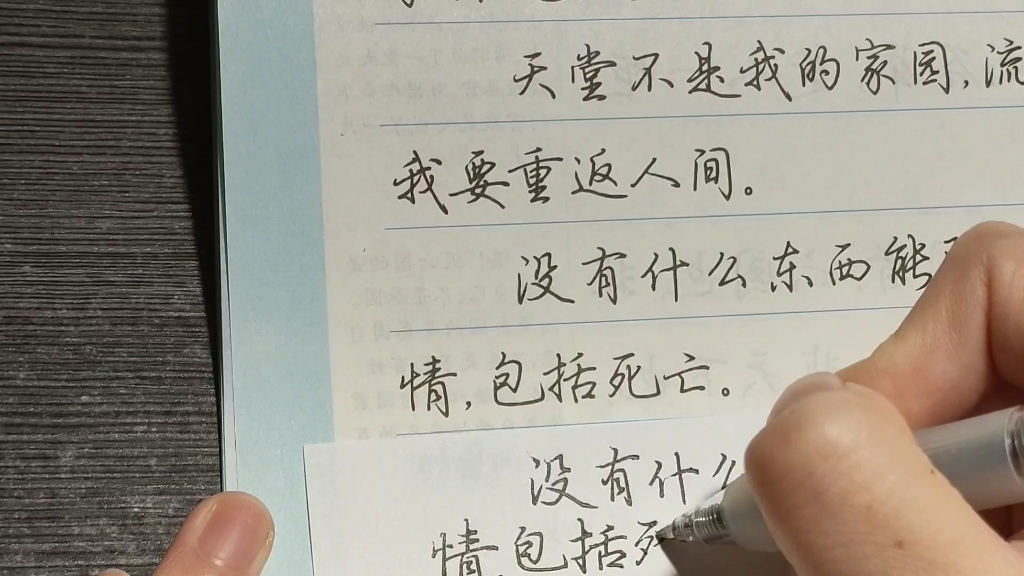 天堂不是我的家园,流
我要重返人间。
没有什么东西能
情,包括死亡。
没有什么
情,包括死